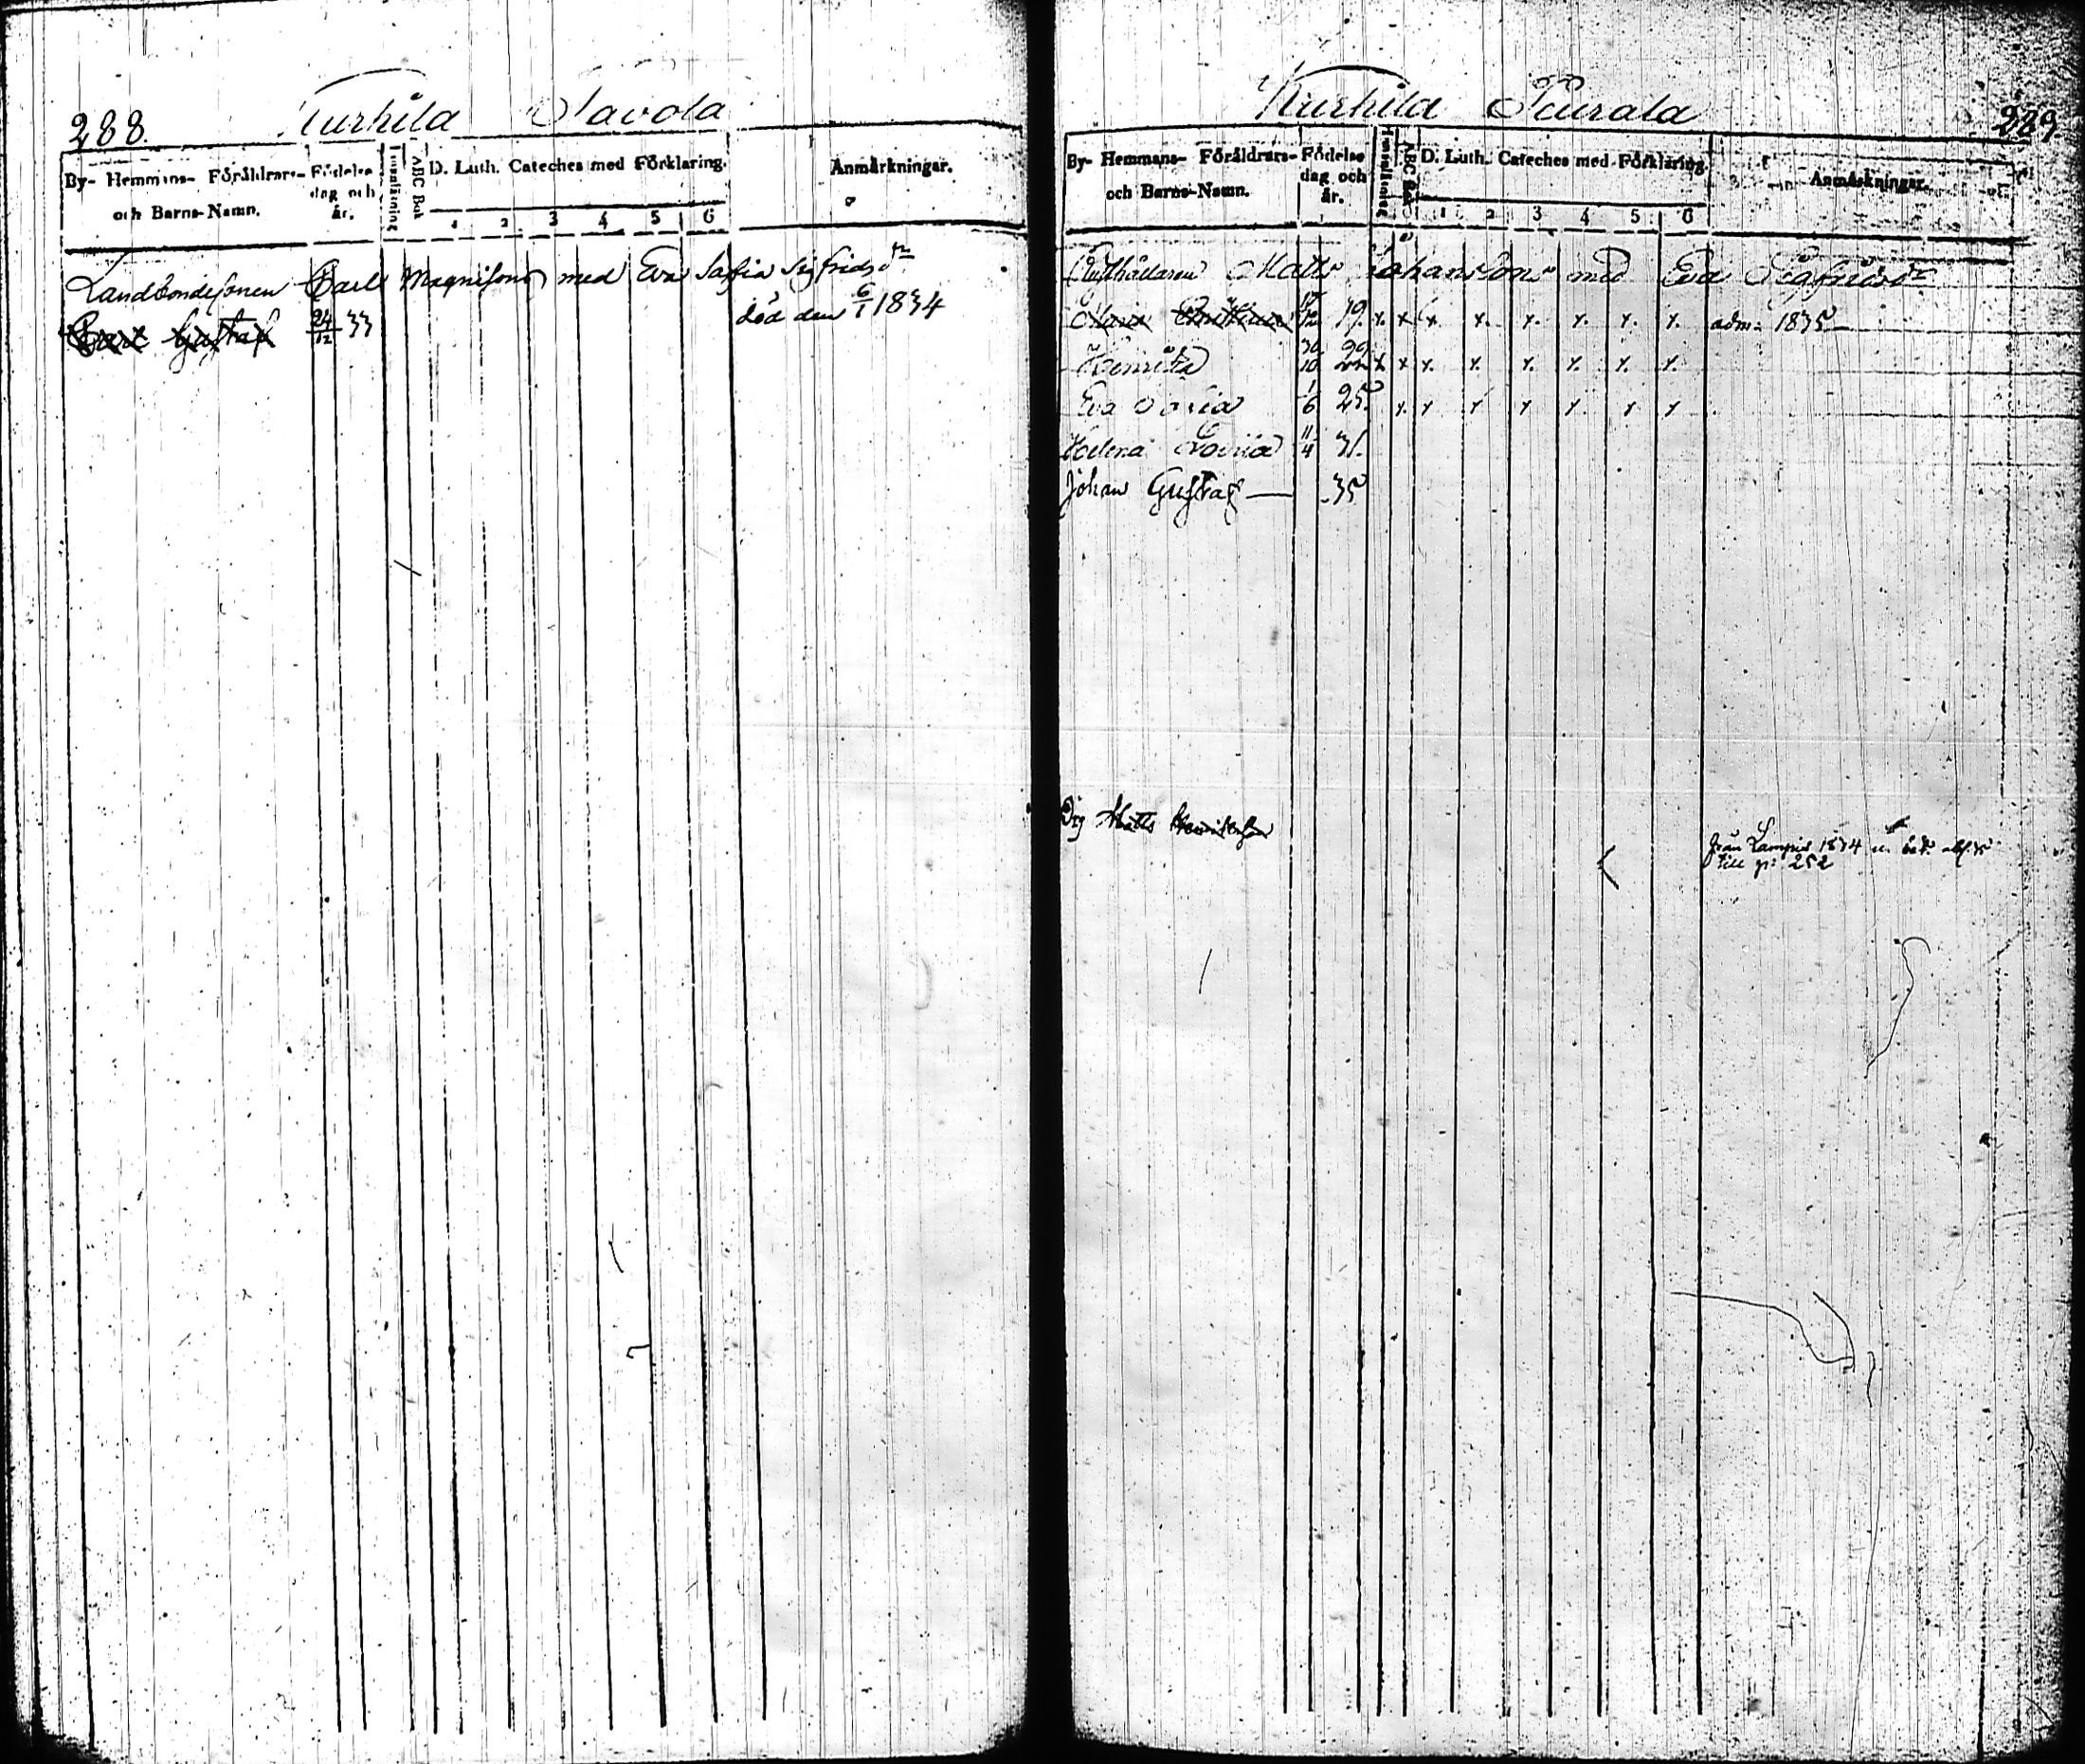 288. Kurhila Savola
By- Hemmans- Föräldrars- och Barns-Namn. Födelse dag och år. Innanläsning ABC Bok D. Luth. Cateches med Förklaring. 1 2 3 4 5 6 Anmärkningar.
Landbondesonen Carl Magnison med Eva Sofia Sigfridsdr
Carl Gustaf 24/12 33 död den 6/1 1834
Kurhila Seurala 289.
By- Hemmans- Föräldrars- och Barns-Namn. Födelse dag och år. Innanläsning ABC Bok D. Luth. Cateches med Förklaring. 1 2 3 4 5 6 Anmärkningar.
Matts Johansson med Eva Sigfridsdr
Maria 19. x. x x. x. x. x. x. x. adm. 1835
Henrika 30/10 22 x x x. x. x. x. x. x.
Eva Sofia 1/6 25. x. x x x x. x x
Helena Lovisa 11/4 31.
Johan Gustaf — 35
Drg Matts Henriksson
från Lampis 1834
till p: 252